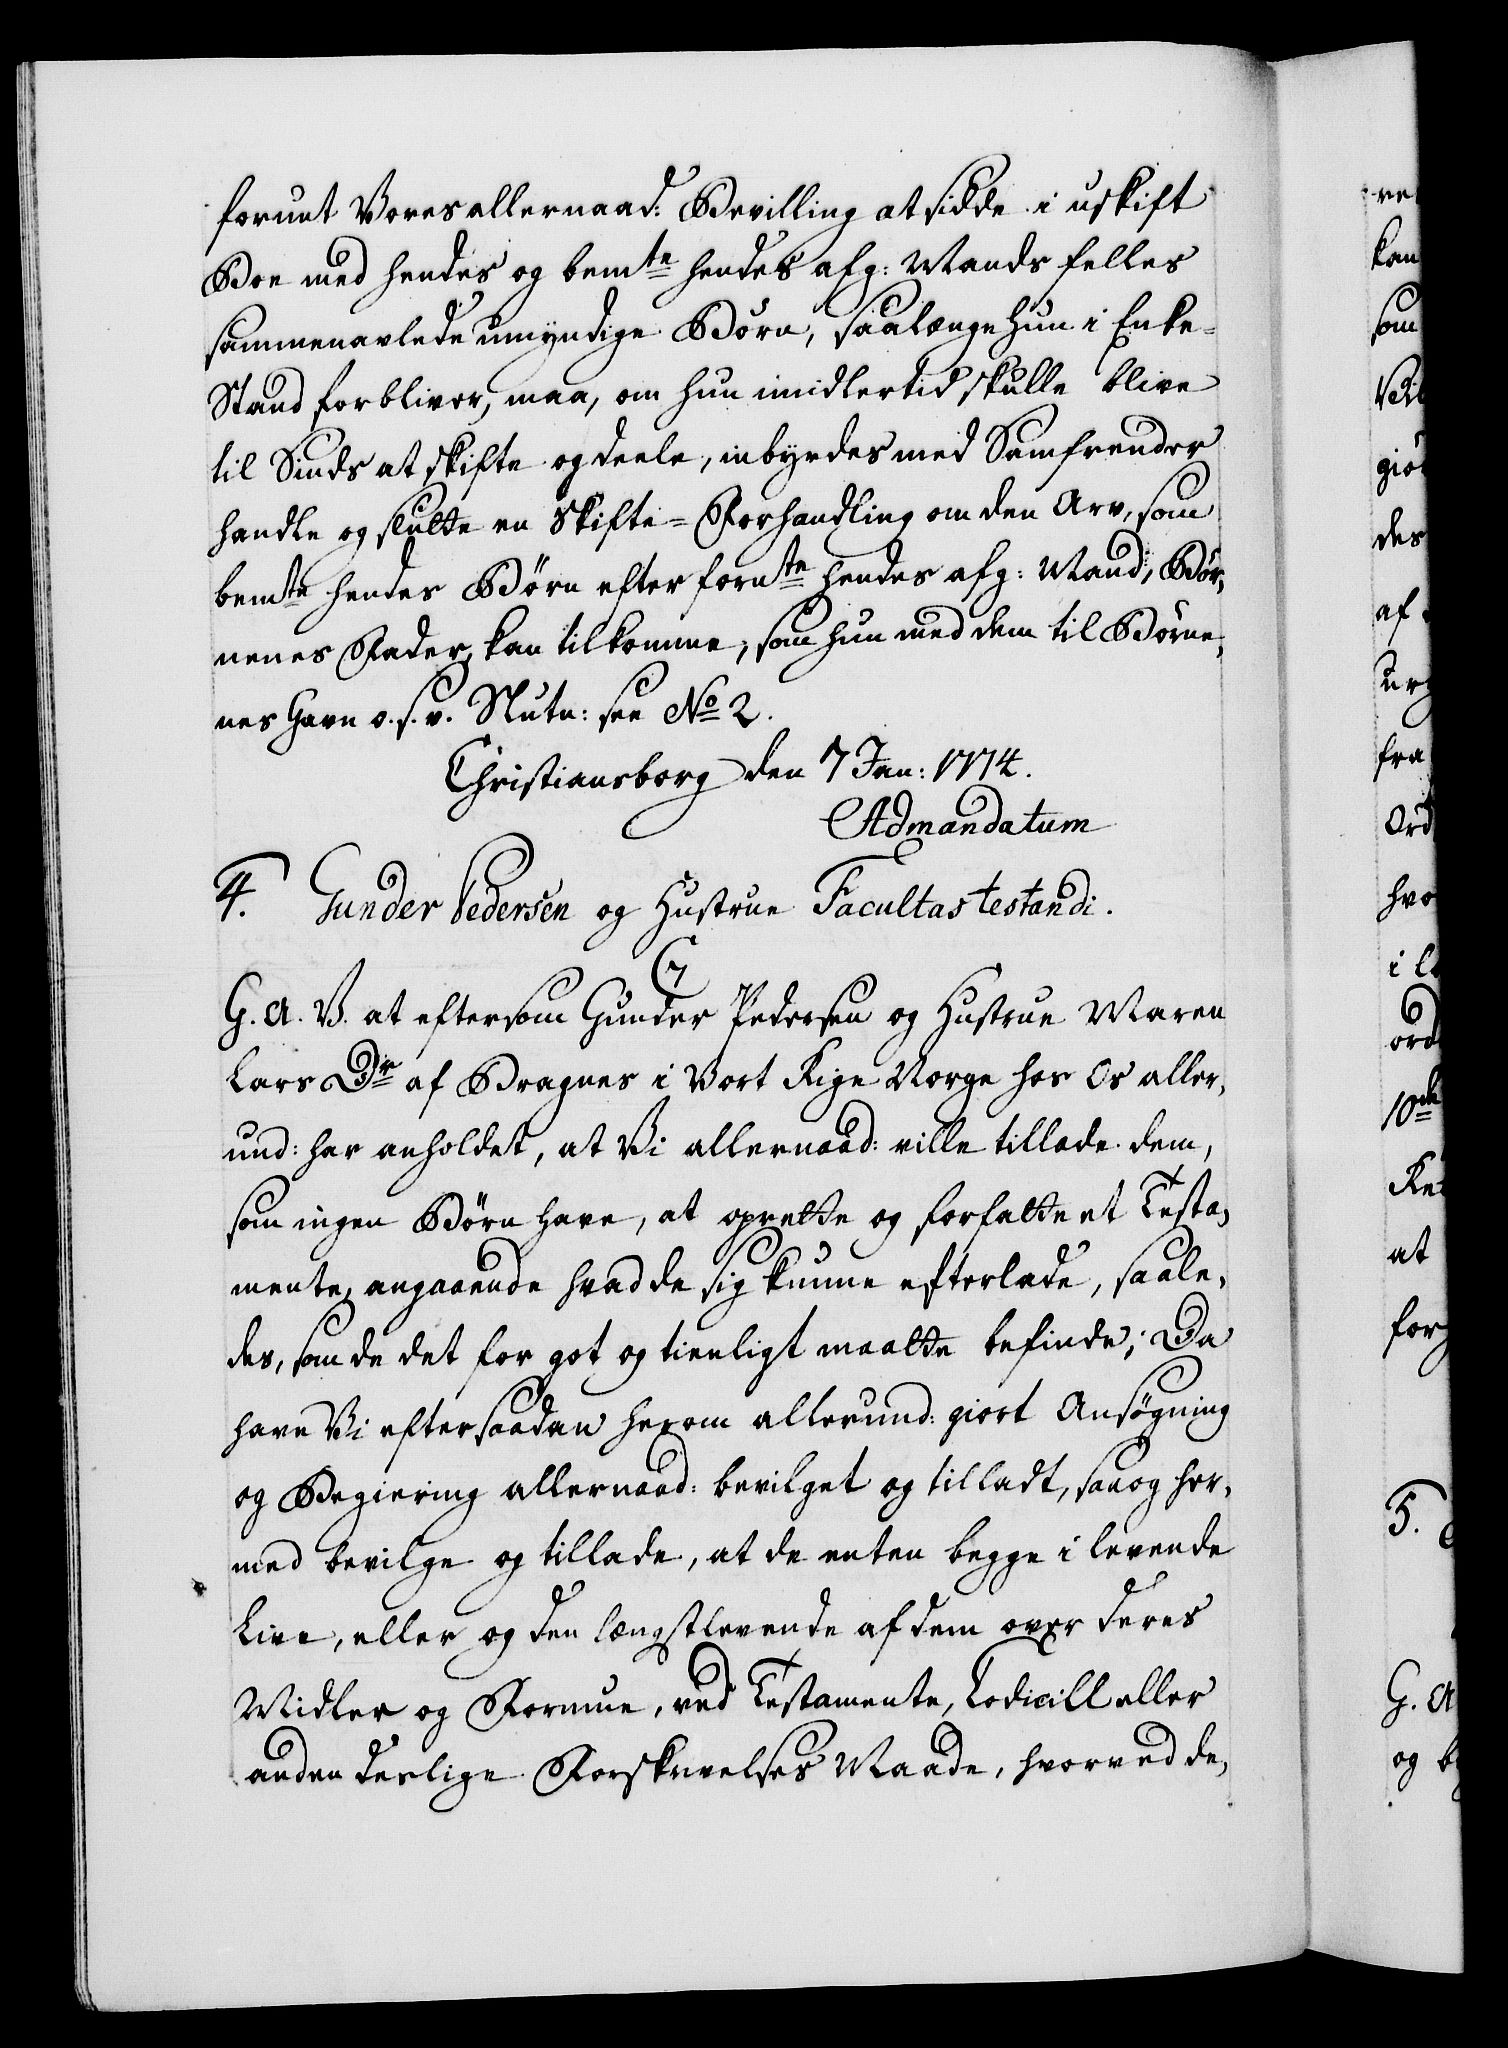 forunt Vores allernaad: Bevilling at sidde i uskift
Boe med hendes og bemte hendes afg: Mands felles
sammenavlede umyndige Børn, saalænge hun i Enke-
Stand forbliver, maa, om hun imidlertid skulle blive
til Sinds at skifte og deele, inbyrdes med Samfrender
handle og slutte en Skifte-Forhandling om den Arv, som
bemte hendes Børn efter fornte hendes afg: Mand, Bør,
nenes Fader, kan tilkomme, som hun med dem til Børne,
nes Gavn o.s.v. Slutn: see No 2.
Christiansborg den 7 Jan: 1774.
Ad mandatum
4. Gunder Pedersen og Hustrue Facultas testandi.
C7
G. A. V. at eftersom Gunder Pedersen og Hustrue Maren
Lars Dr af Bragnes i Vort Rige Norge hos Os aller,
und: har anholdet, at Vi allernaad: ville tillade dem,
som ingen Børn have, at oprette og forfatte et Testa,
mente, angaaende hvad de sig kunne efterlade, saale,
des, som de det for got og tienligt maatte befinde; Da
have Vi efter saadan herom allerund: giort Ansøgning
og Begiering allernaad: bevilget og tilladt, saa og her,
med bevilge og tillade, at de enten begge i levende
Live, eller og den længstlevende af dem over deres
Midler og Formue, ved Testamente, Codicill eller
anden deslige Forskrivelses Maade, hvorved de,
kan
som
des
af
fra
Ord
hvo
ord
10de
at
for
5.
G. A
og b